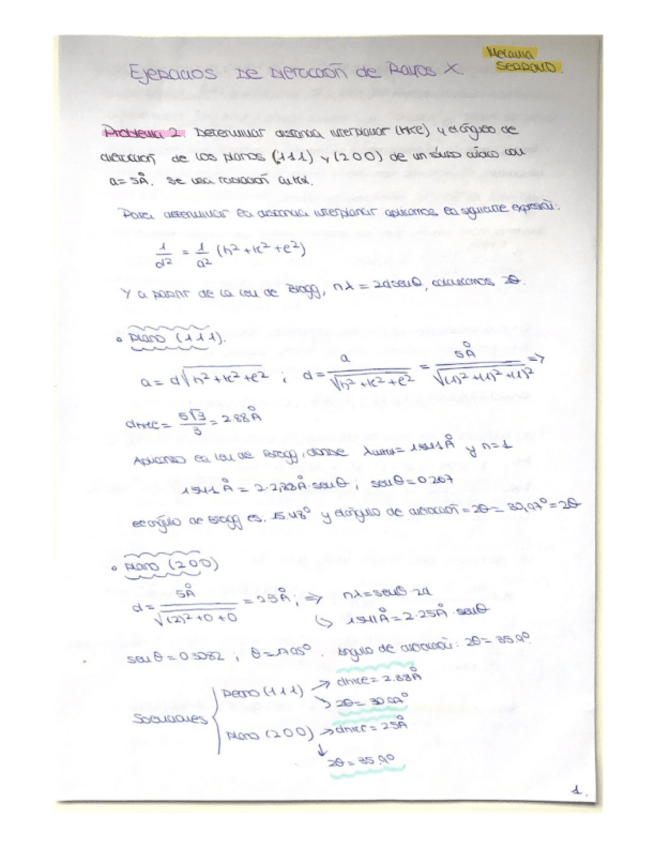 Ejercicios de Difracción de Rayos X.
Melania
SERRANO.
Problema 2. Determinar distancia interplanar (hkl) y el ángulo de
difracción de los planos (111) y (200) de un sólido cúbico con
a = 5Å. Se usa radiación CuKα.
Para determinar la distancia interplanar aplicamos la siguiente expresión:
1/d² = 1/a² (h² + k² + l²)
Y a partir de la ley de Bragg, nλ = 2d senθ, calculamos 2θ.
• Plano (111).
a = d√h² + k² + l² ; d = a/√h² + k² + l² = 5Å/√(1)² + (1)² + (1)² =>
dhkl = 5√3/3 = 2.88Å
Aplicando la ley de Bragg, donde λ = 1.541Å y n = 1
1.541Å = 2·2.88Å·senθ ; senθ = 0.267
el ángulo de Bragg es: 15.48° y el ángulo de difracción = 2θ = 30,97° = 2θ
• Plano (200)
d = 5Å/√(2)² + 0 + 0 = 2.5Å ; => nλ = senθ·2d
↳ 1.541Å = 2·2.5Å·senθ
senθ = 0.3082 ; θ = 17.95°. Ángulo de difracción: 2θ = 35.9°
Soluciones
Plano (111) → dhkl = 2.88Å
↘ 2θ = 30.97°
Plano (200) → dhkl = 2.5Å
↓
2θ = 35,9°
1.